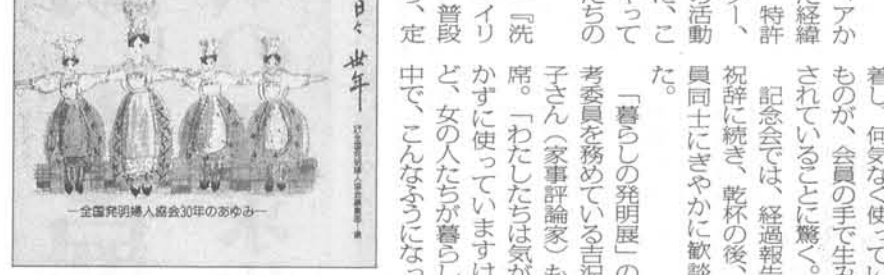 アか
た経緯
特許
ー、
の活動
に、こ
って
たちの
『洗
イリ
普段
う、定
着し、何気なく使ってい
ものが、会員の手で生み
されていることに驚く。
記念会では、経過報告
祝辞に続き、乾杯の後、
員同士にぎやかに歓談
た。
「暮らしの発明展」の
考委員を務めている吉沢
子さん（家事評論家）も
席。「わたしたちは気が
かずに使っていますけ
ど、女の人たちが暮らし
中で、こんなふうになっ
日々 世年
—全国発明婦人協会30年のあゆみ—